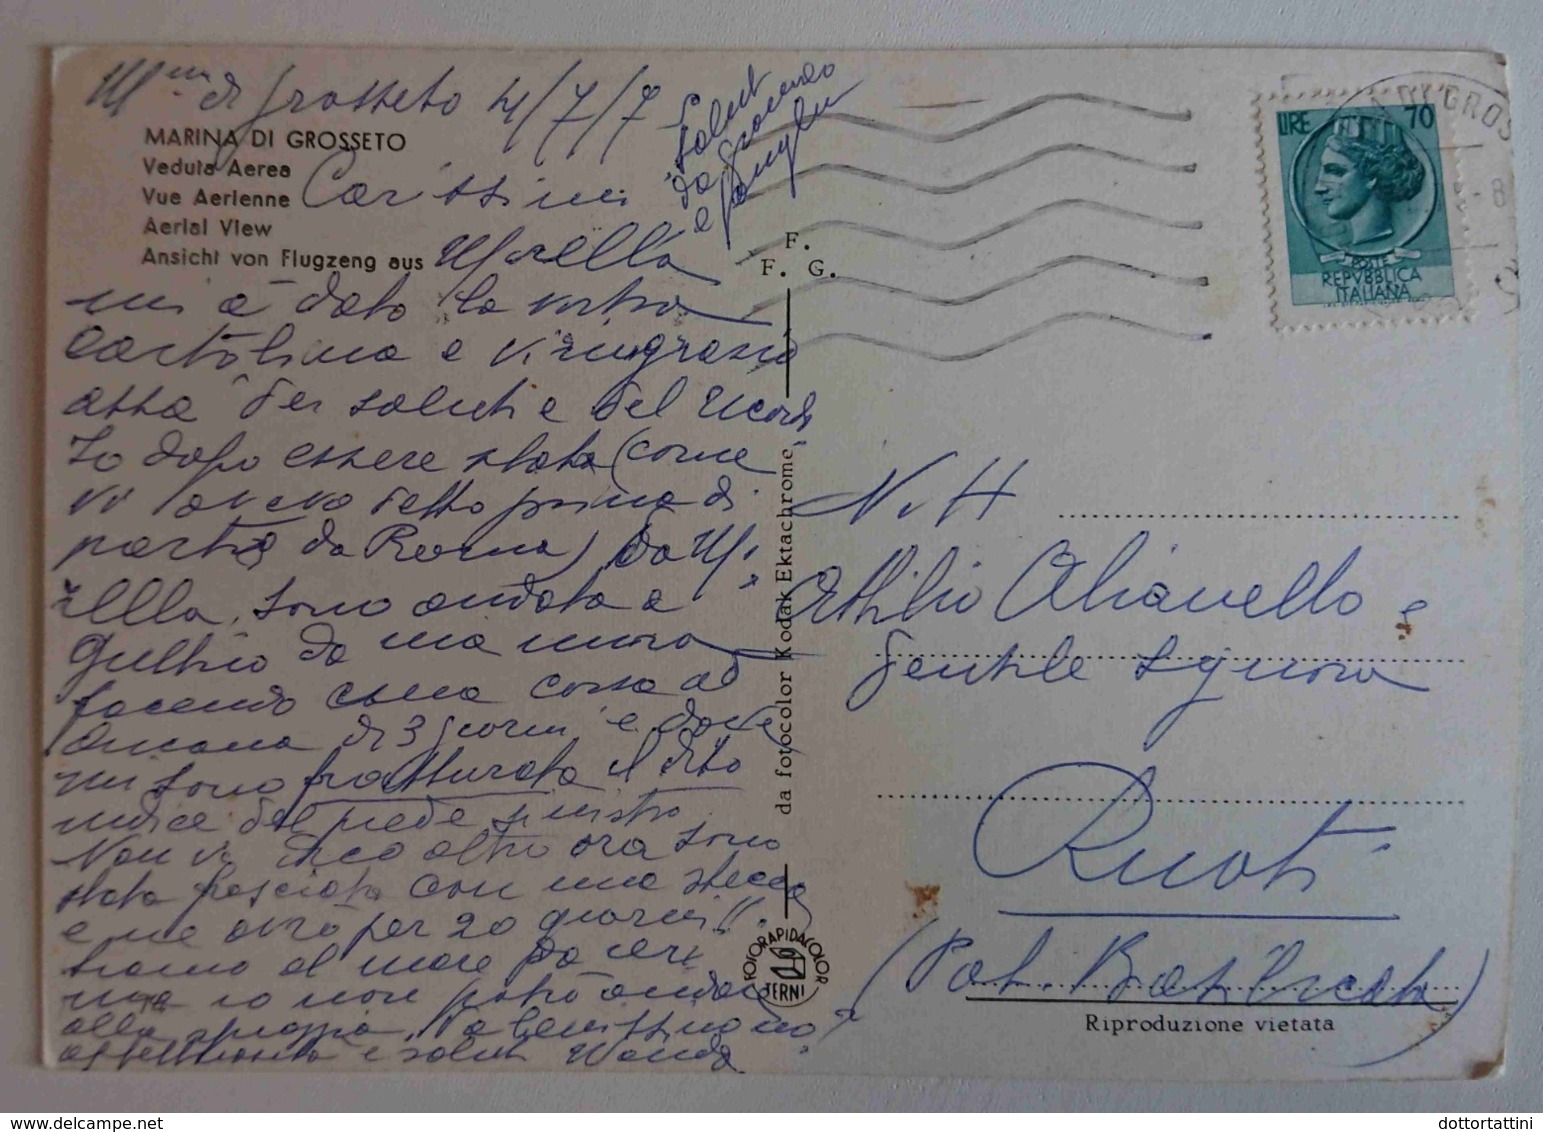 di Grosseto 4/7/7
Saluti
da Giacomo
e famiglia
MARINA DI GROSSETO
Veduta Aerea
Vue Aerienne
Aerial View
Ansicht von Flugzeng aus
Carissimi
Mirella
mi à dato la vostra
cartolina e vi ringrazio
assai dei saluti e del ricordo
Io dopo essere stata (come
vi avevo detto prima di
partire da Roma) da Mi
rella, sono andata a
Gubbio da mia nuora
facendo una corsa ad
Ancona di 3 giorni e dove
mi sono fratturata il dito
indice del piede sinistro
Non vi dico altro ora sono
stata fasciata con una stecca
e ne avrò per 20 giorni!!
al mare da ieri
ma io non potrò andare
alla spiaggia. Va benissimo no?
affettuosità e saluti Wanda
F.
F. G.
da fotocolor Kodak Ektachrome
FOTORAPIDACOLOR
TERNI
LIRE 70
REPVBBLICA
ITALIANA
DI GROS
N. H
Attilio Alianello e
gentile signora
Ruoti
(Pot. Basilicata)
Riproduzione vietata
dottortattini